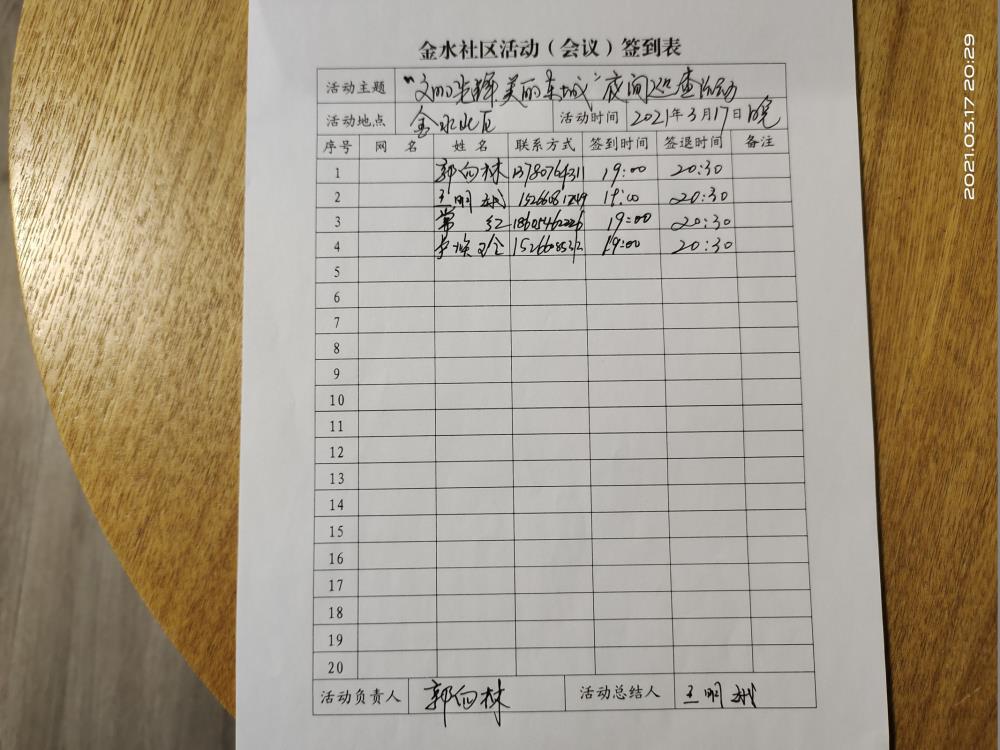 金水社区活动（会议）签到表
活动主题 "文明光辉 美丽东城"夜间巡查活动
活动地点 金水社区 活动时间 2021年3月17日晚
序号 网 名 姓 名 联系方式 签到时间 签退时间 备注
1 郭向林 13780764311 19:00 20:30
2 王明 19:00 20:30
3 常红 19:00 20:30
4 19:00 20:30
5
6
7
8
9
10
11
12
13
14
15
16
17
18
19
20
活动负责人 郭向林 活动总结人 王明
2021.03.17 20:29